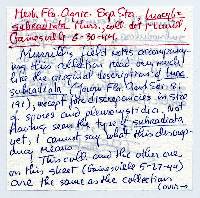 Herb. Fla. Agric. Exp. Sta., Tuscul-
subradiata Murr., coll. det. Murrill,
Gainesville 6-30-44,
Murrill's field notes accompany-
ing this collection read very much
like the original description of
subradiata (Quar. Fla. Acad. Sci. 8:
191), except for discrepancies in size
of spores and pleurocystidia. Not
having seen the type of subradiata
yet, I cannot say what this discrep-
ancy means.
This coll. and the other one
on this sheet (Gainesville 5-27-44)
are the same as the collection
(over→)